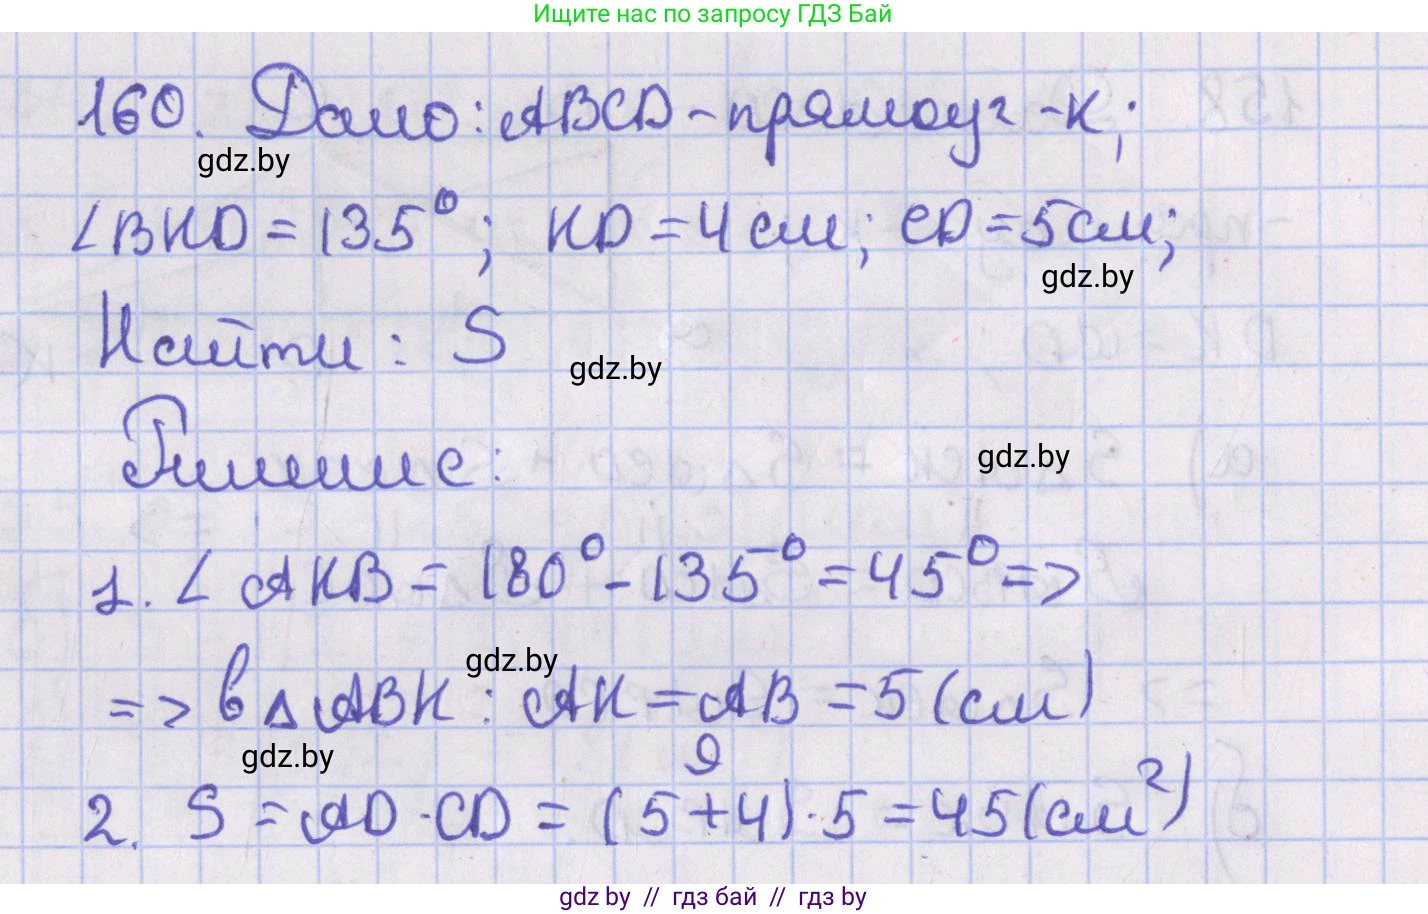 Ищите нас по запросу ГДЗ Бай
160. Дано: ABCD - прямоуг-к;
gdz.by
∠BKD = 135°; KD = 4 см; CD = 5 см;
gdz.by
Найти: S
gdz.by
Решение:
gdz.by
1. ∠AKB = 180° - 135° = 45° =>
gdz.by
=> в △ABK: AK = AB = 5 (см)
gdz.by
9
2. S = AD · CD = (5+4) · 5 = 45 (см²)
gdz.by // гдз бай // гдз by